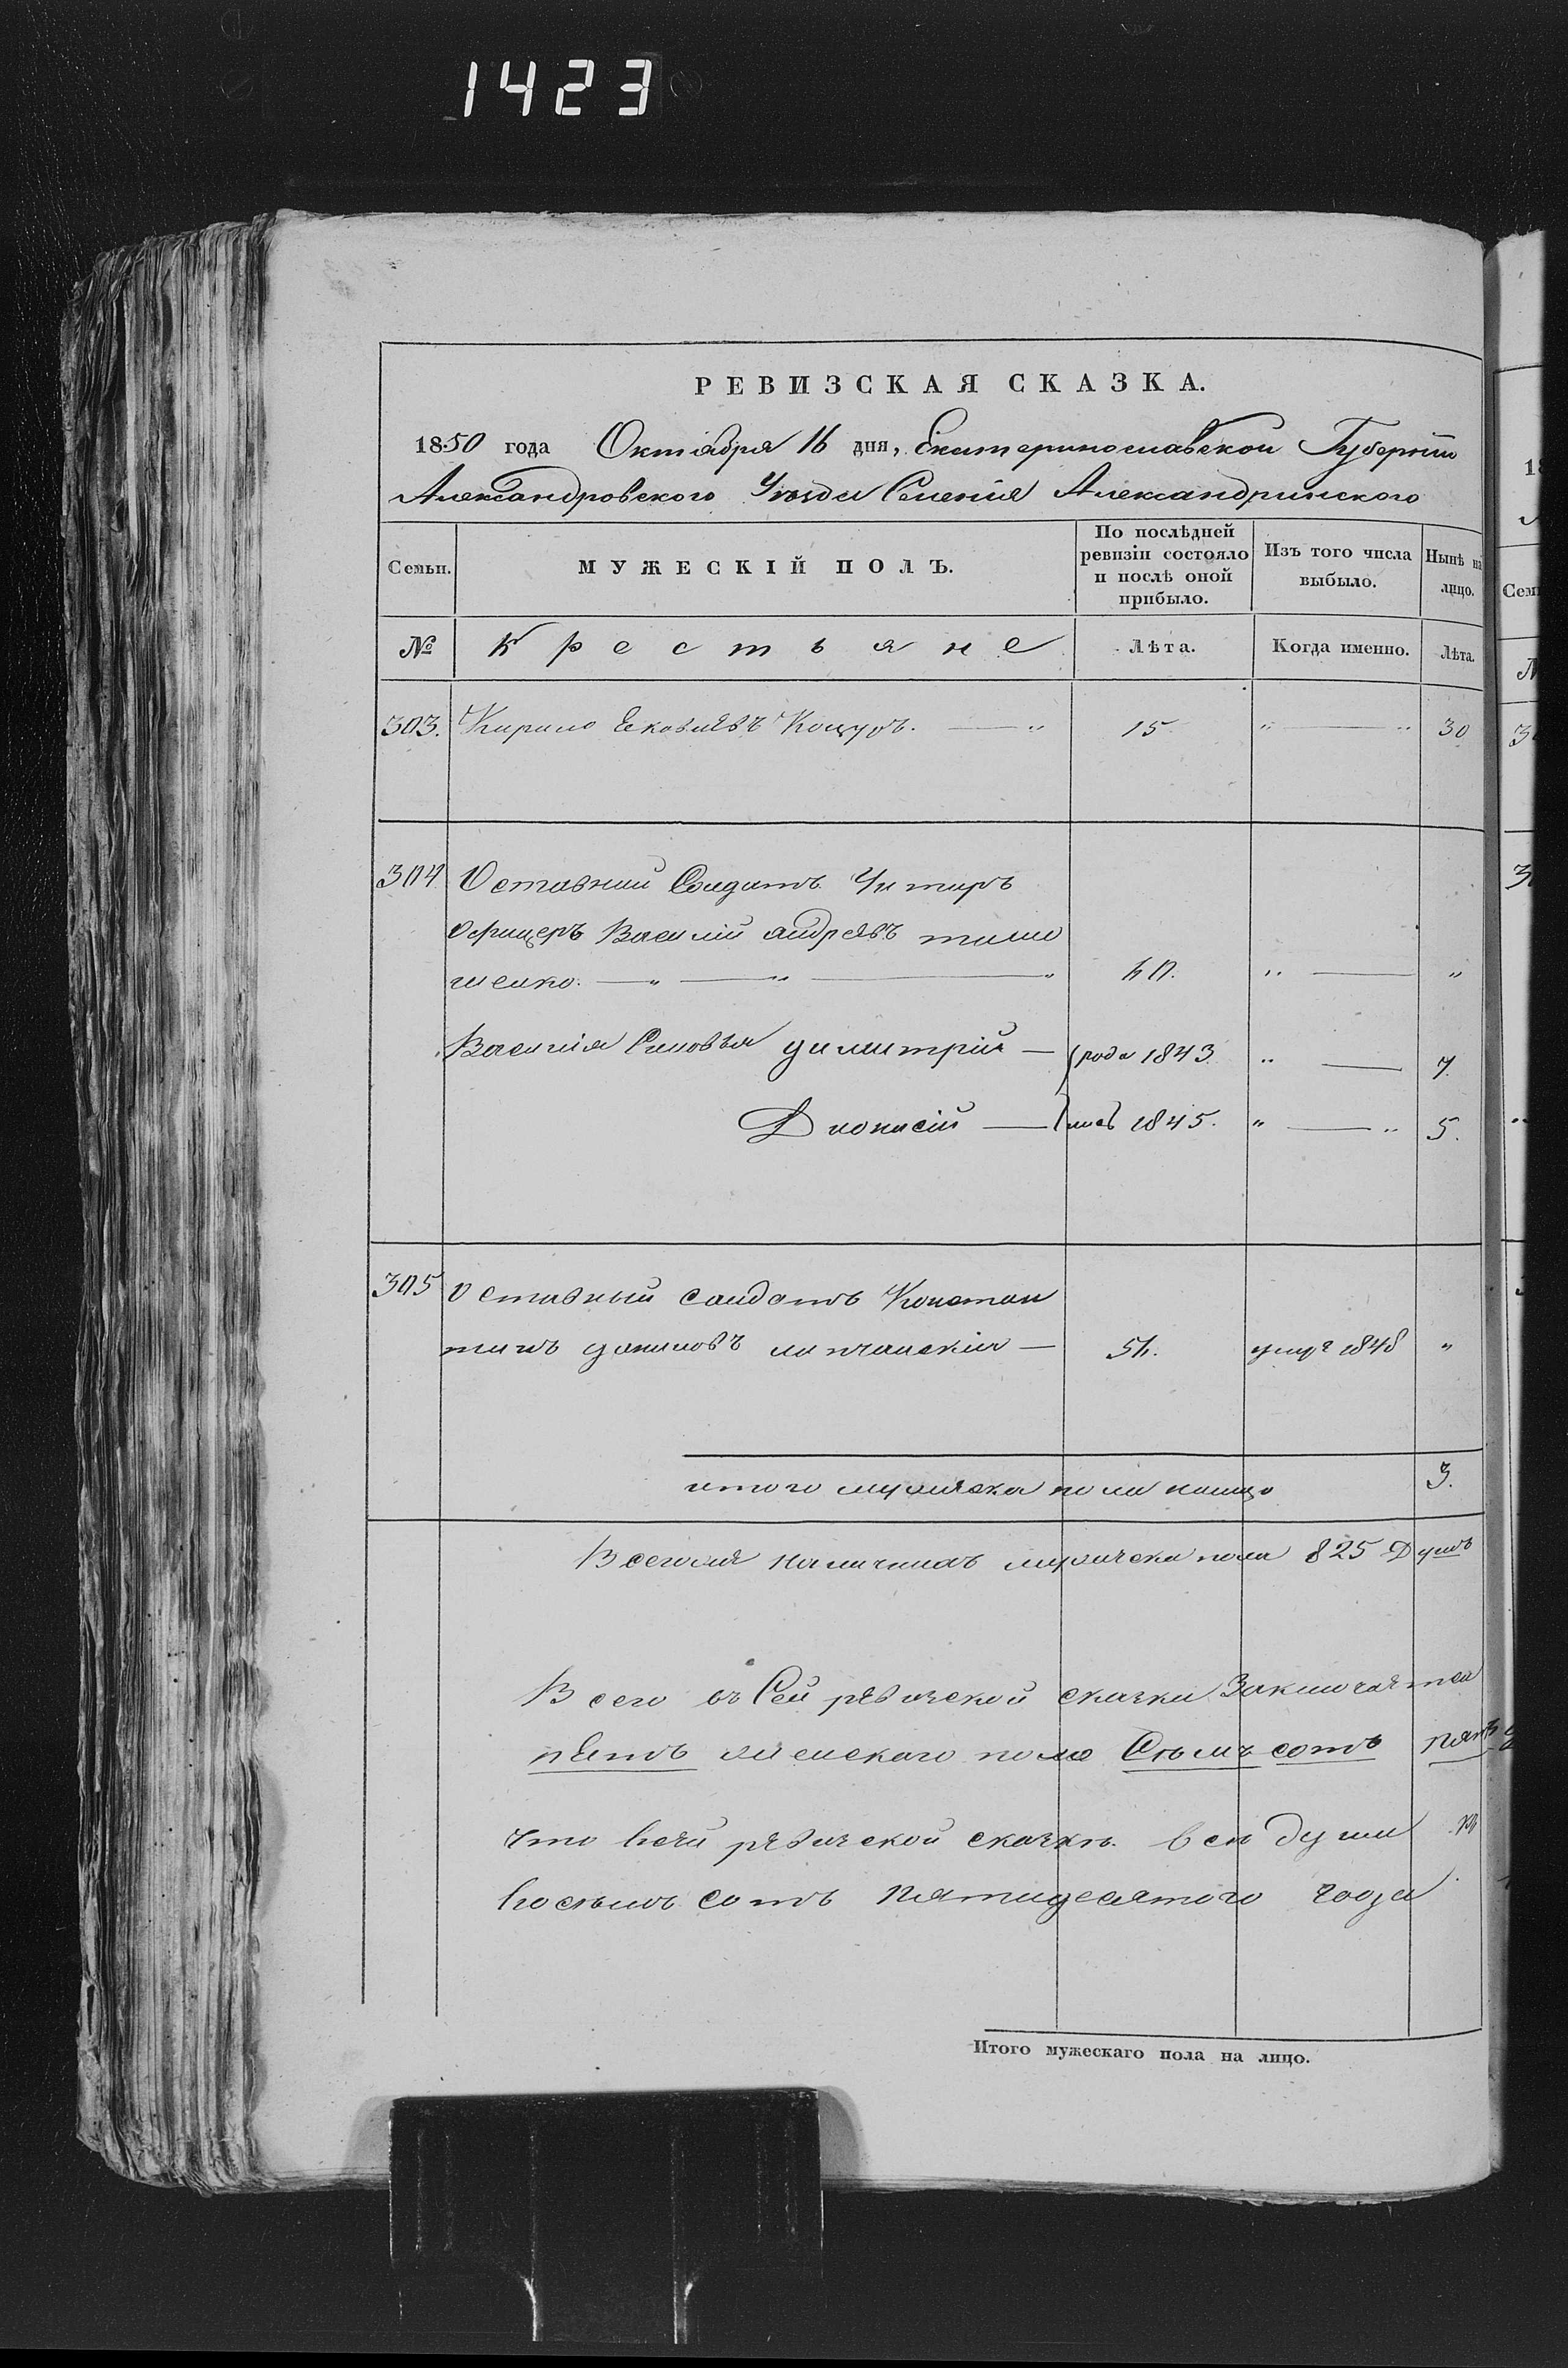 1423
РЕВИЗСКАЯ СКАЗКА.
1850 года Октября 16 дня, Екатеринославской Губерніи
Александровского Уезда Селенія Александринского
Семьи. МУЖЕСКІЙ ПОЛЪ. По послѣдней ревизіи состояло и послѣ оной прибыло. Изъ того числа выбыло. Нынѣ на лицо.
№ Крестьяне Лѣта. Когда именно. Лѣта.
303. Кирило Яковлевъ Коцуръ. — " 15 " — " 30
304 Оставний Солдатъ Унтиръ
Офицеръ Василій андреевъ тимо
шенко. — " — " — " 40. " — "
Василія Синовья димитрій — рода 1843 " — 7.
Діонисій — 1845. " — " 5.
305 Оставный солдатъ Констан
тинъ даниловъ — 54. умре 1848 "
итого мужеска пола налицо 3.
Всегоже наличнихъ мужеска пола 825 Душъ
Всего въ Сей ревизской сказки Заключается
женскаго пола Сѣмъ сотъ пять
что всей ревизской сказкѣ всѣ души
восѣмъ сотъ пятидесятого года
Итого мужескаго пола на лицо.